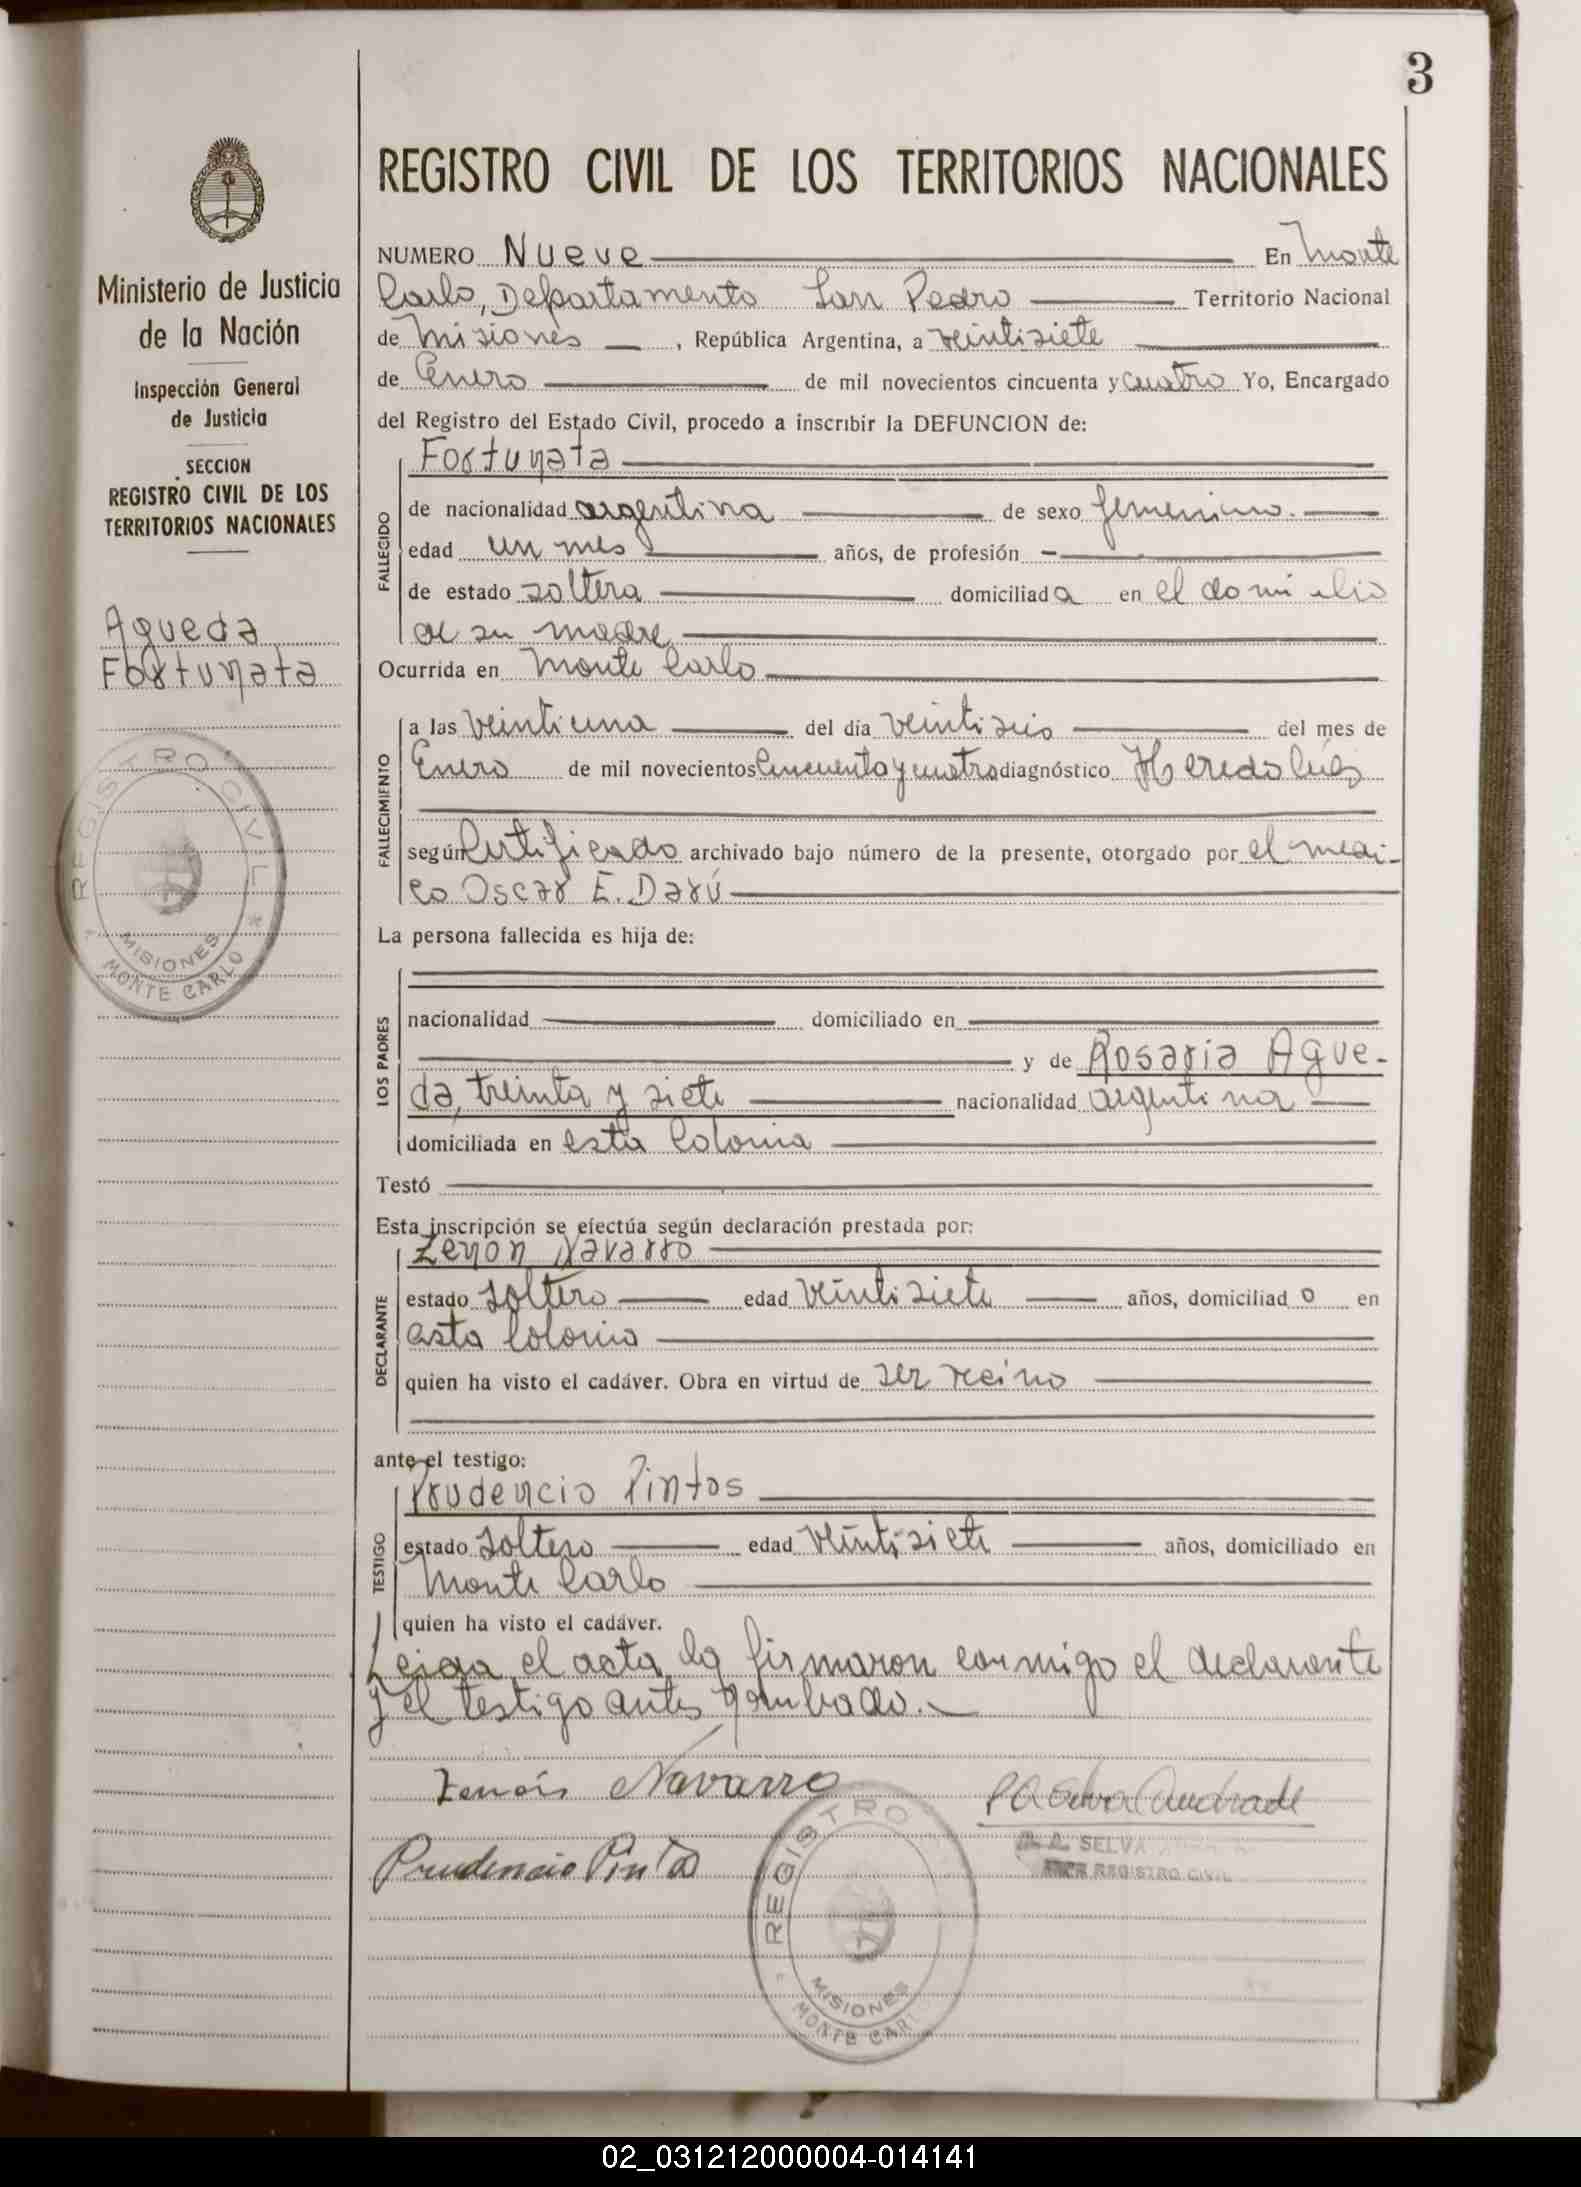 3
Ministerio de Justicia
de la Nación
Inspección General
de Justicia
SECCION
REGISTRO CIVIL DE LOS
TERRITORIOS NACIONALES
Agueda
Fortunata
REGISTRO CIVIL
MISIONES
MONTE CARLO
REGISTRO CIVIL DE LOS TERRITORIOS NACIONALES
NUMERO Nueve En Monte
Carlo, Departamento San Pedro Territorio Nacional
de Misiones, República Argentina, a veintisiete
de Enero de mil novecientos cincuenta y cuatro Yo, Encargado
del Registro del Estado Civil, procedo a inscribir la DEFUNCION de:
FALLECIDO
Fortunata
de nacionalidad argentina de sexo femenino.
edad un mes años, de profesión —
de estado soltera domiciliada en el domicilio
de su madre
Ocurrida en Monte Carlo
FALLECIMIENTO
a las veintiuna del día veintiseis del mes de
Enero de mil novecientos Cincuenta y cuatro diagnóstico Heredolúes
según Certificado archivado bajo número de la presente, otorgado por el medi-
co Oscar E. Darú
La persona fallecida es hija de:
LOS PADRES
nacionalidad domiciliado en
y de Rosaria Ague-
da, treinta y siete nacionalidad argentina
domiciliada en esta Colonia
Testó
Esta inscripción se efectúa según declaración prestada por:
DECLARANTE
Zenon Navarro
estado soltero edad veintisiete años, domiciliado en
esta Colonia
quien ha visto el cadáver. Obra en virtud de ser vecino
ante el testigo:
TESTIGO
Prudencio Pintos
estado soltero edad veintisiete años, domiciliado en
Monte Carlo
quien ha visto el cadáver.
Leida el acta la firmaron conmigo el declarante
y el testigo antes nombrado.
Zenón Navarro
Selva Andrade
SELVA
REGISTRO CIVIL
Prudencio Pintos
REGISTRO
MISIONES
MONTE CARLO
02_031212000004-014141